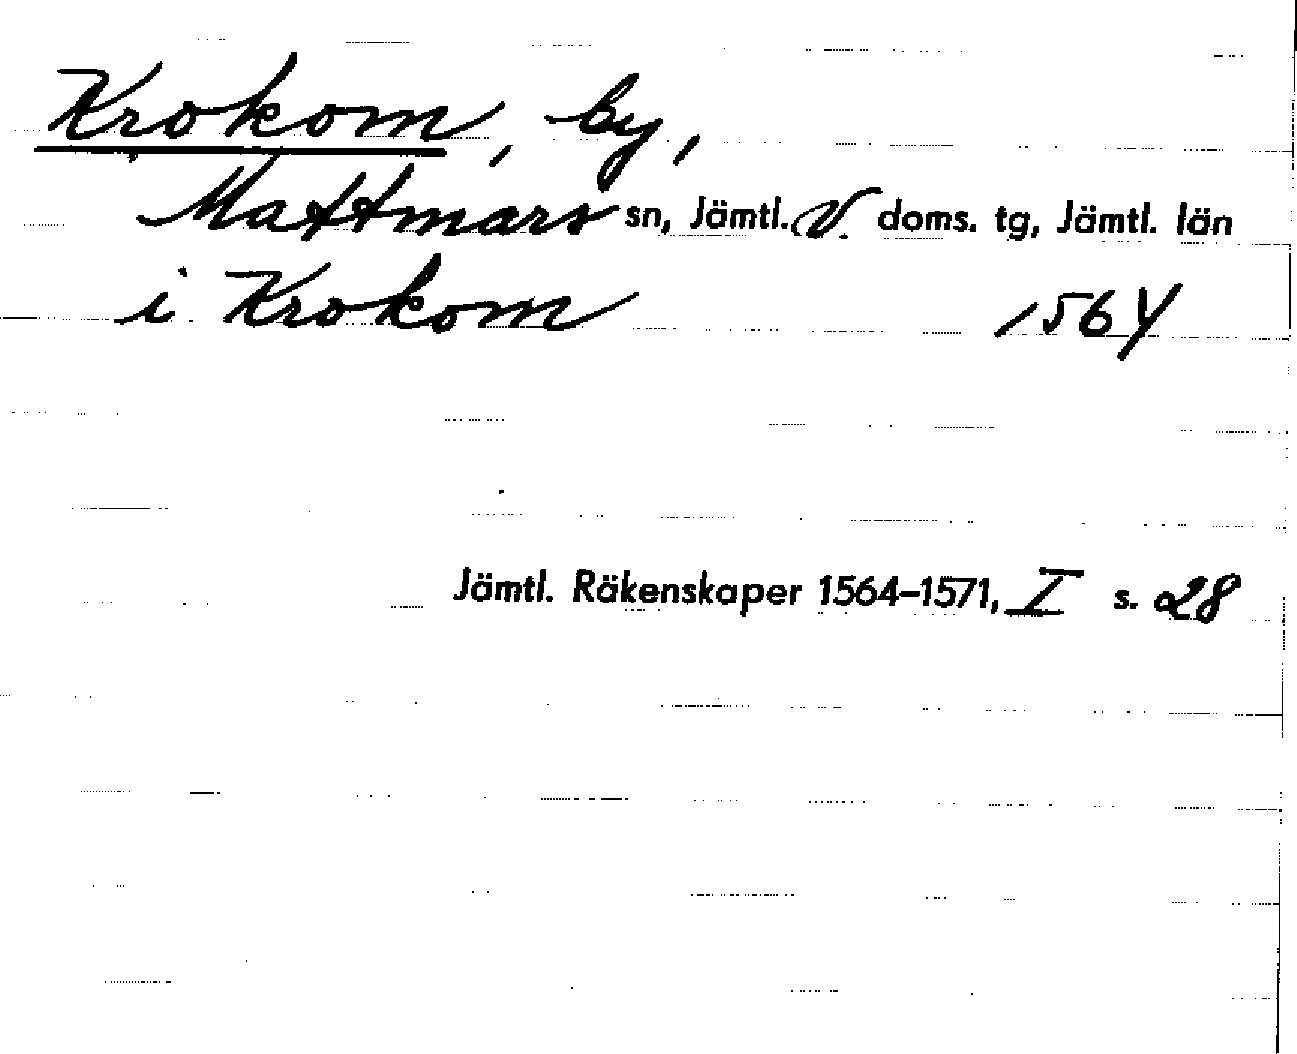 Krokom, by,
Mattmars sn, Jämtl. V. doms. tg, Jämtl. län
i Krokom 1564
Jämtl. Räkenskaper 1564–1571, I s. 28